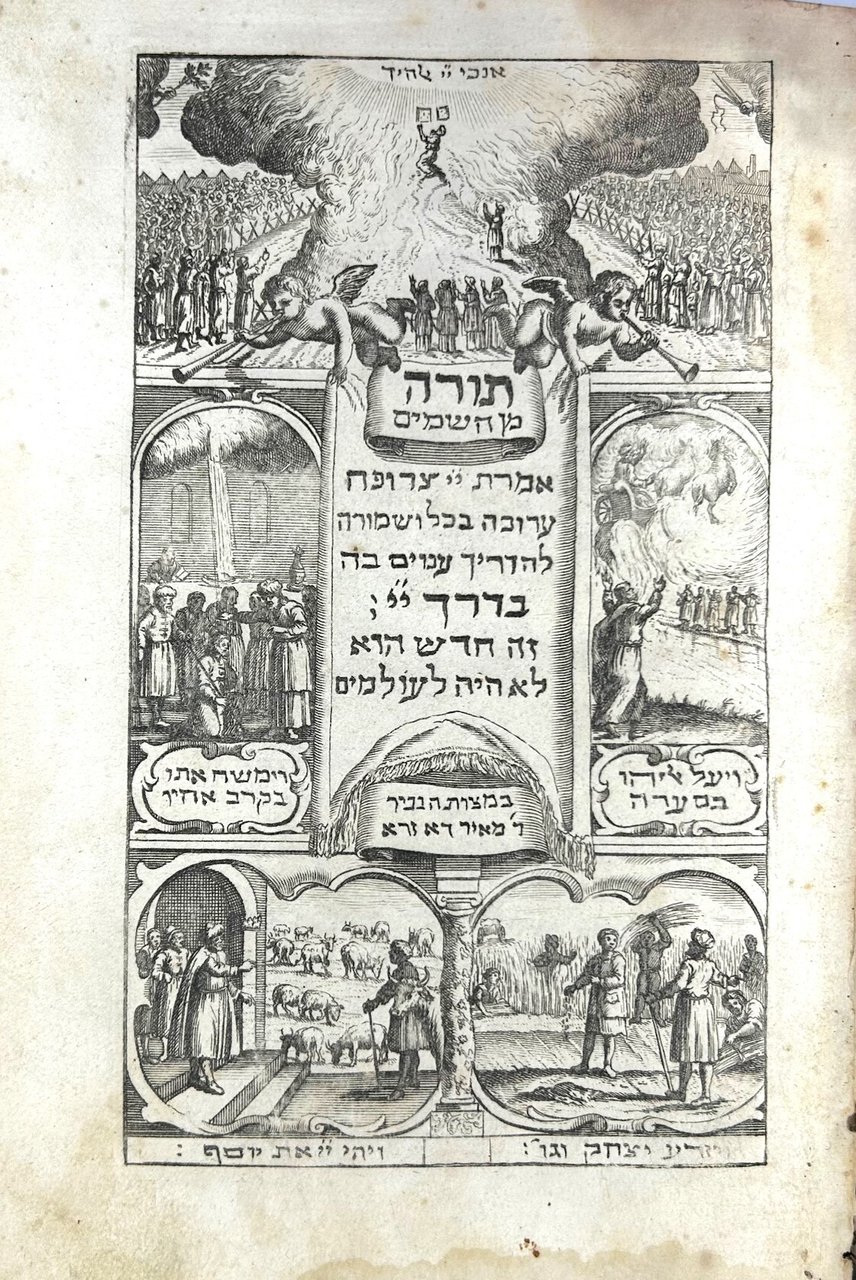 אנכי יי ﭏהיך
תורה
מן השמים
אמרת יי צרופה
ערוכה בכל ושמורה
להדריך ענוים בה
בדרך יי ;
זה חדש הוא
לא היה לעולמים
ויעל ﭏיהו
בסערה
במצות הגביר
ר' מאיר דא זרא
וימשח אתו
בקרב אחיו
ויזרע יצחק וגו' :
ויהי יי את יוסף :